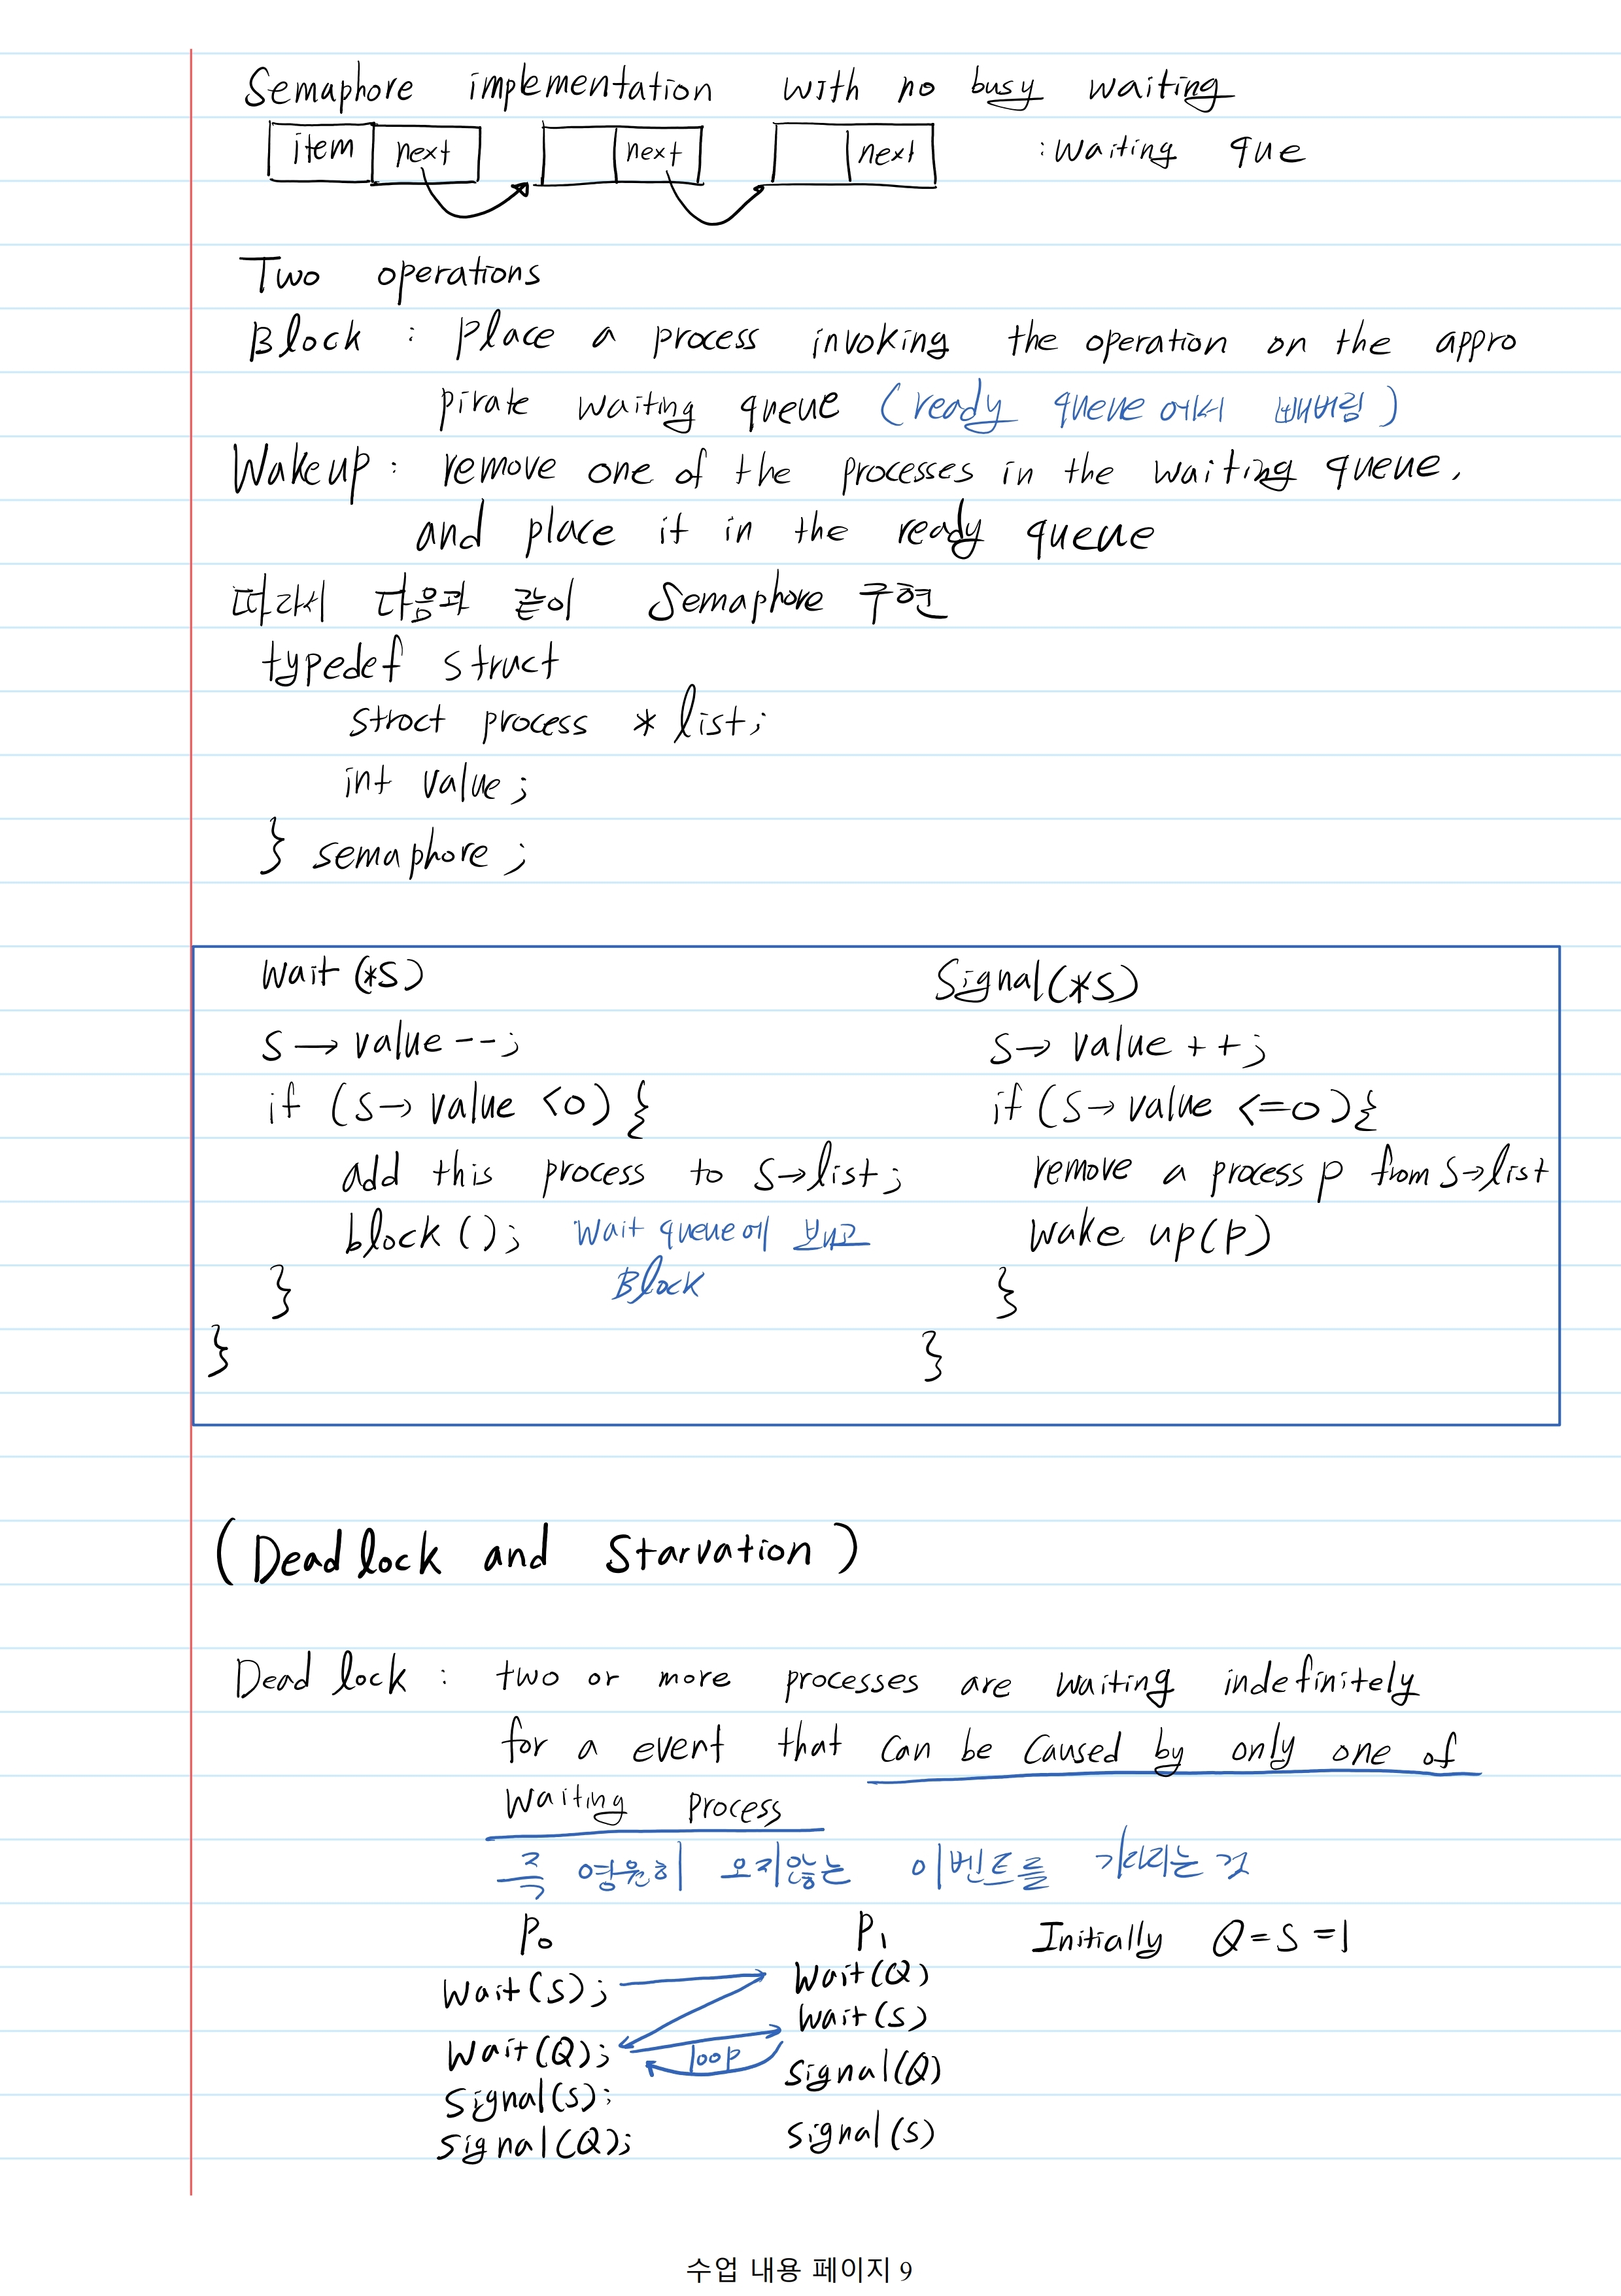 Semaphore implementation with no busy waiting
item next next next : waiting que
Two operations
Block : Place a process invoking the operation on the appro
pirate waiting queue (ready queue에서 빼버림)
Wake up : remove one of the processes in the waiting queue.
and place it in the ready queue
따라서 다음과 같이 Semaphore 구현
typedef struct
stroct process * list;
int value;
} semaphore;
Wait (*S)
S → value --;
if (S → value <0) {
add this process to S→list;
block (); Wait queue에 보내고
Block
}
}
Signal(*S)
S → value ++;
if (S → value <=0){
remove a process p from S→list
wake up(p)
}
}
(Dead lock and Starvation)
Dead lock : two or more processes are waiting indefinitely
for a event that can be caused by only one of
waiting process
즉 영원히 오지않는 이벤트를 기다리는 것
P0 P1 Initially Q=S=1
Wait(S); Wait(Q)
Wait(S)
Wait(Q); loop
signal(Q)
signal(S);
signal(Q); signal(S)
수업 내용 페이지 9